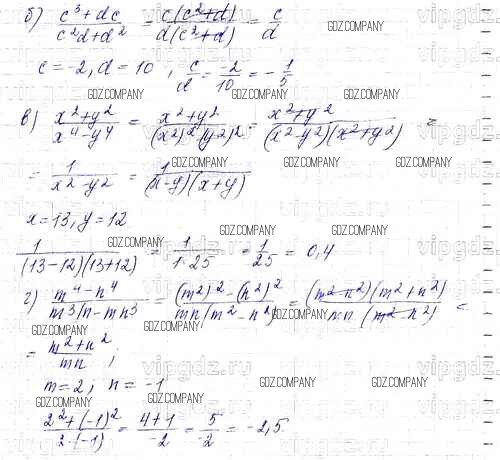 б) (c³+dc)/(c²d+d²) = (c(c²+d))/(d(c²+d)) = c/d
c=-2, d=10, c/d = -2/10 = -1/5
в) (x²+y²)/(x⁴-y⁴) = (x²+y²)/((x²)²-(y²)²) = (x²+y²)/((x²-y²)(x²+y²)) =
= 1/(x²-y²) = 1/((x-y)(x+y))
x=13, y=12
1/((13-12)(13+12)) = 1/(1·25) = 1/25 = 0,4
г) (m⁴-n⁴)/(m³n-mn³) = ((m²)²-(n²)²)/(mn(m²-n²)) = ((m²-n²)(m²+n²))/(mn(m²-n²)) =
= (m²+n²)/(mn);
m=2, n=-1
(2²+(-1)²)/(2·(-1)) = (4+1)/(-2) = 5/(-2) = -2,5
GDZ.COMPANY
vipgdz.ru